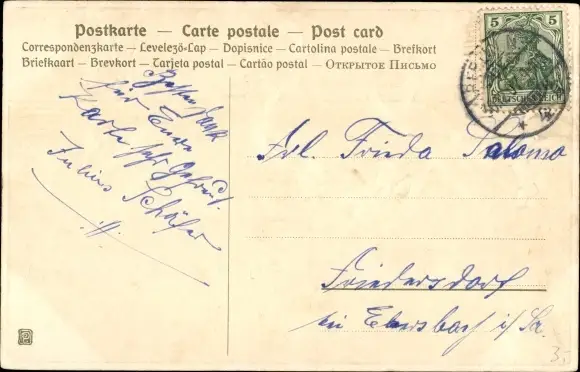 Postkarte — Carte postale — Post card
Correspondenzkarte — Levelező-Lap — Dopisnice — Cartolina postale — Brefkort
Briefkaart — Brevkort — Tarjeta postal — Cartão postal — Открытое Письмо
5 5
DEUTSCHES REICH
Besten Dank
für Eure
Karte sehr gefreut.
Julius Schäfer
Frl. Frieda Salomo
Friedersdorf
bei Ebersbach i/Sa.
35